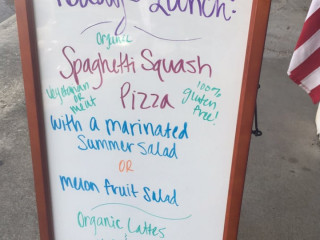 Today's Lunch:
Organic
Spaghetti Squash
Pizza
Vegetarian
OR
meat
100%
gluten
free!
with a marinated
Summer Salad
OR
melon fruit salad
Organic Lattes